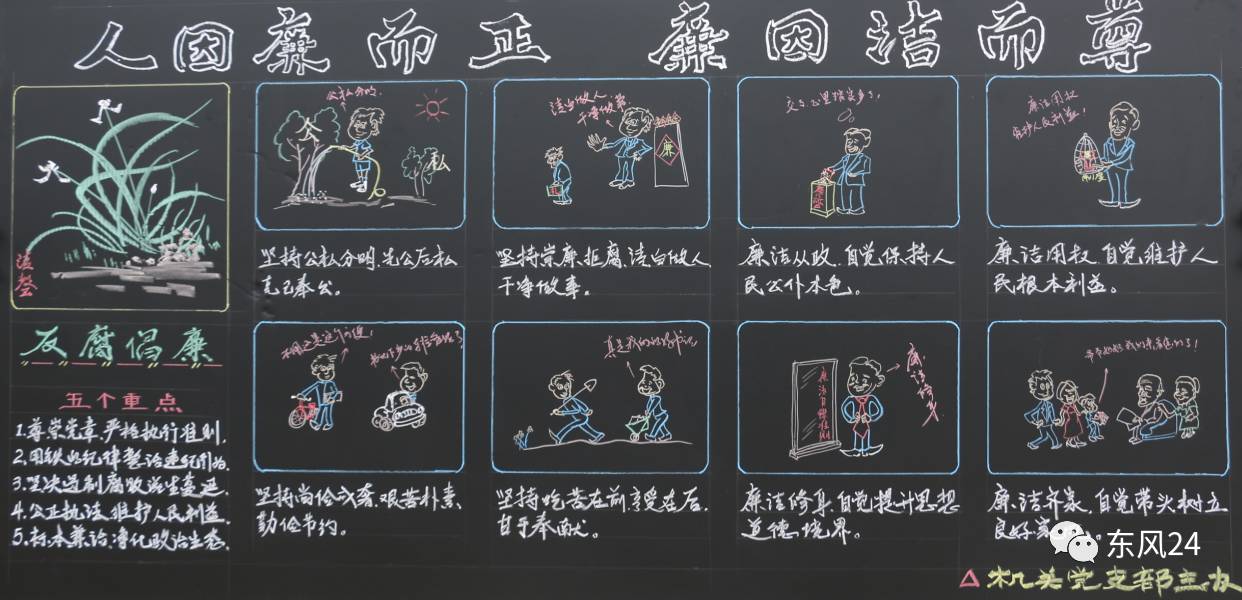 人因廉而正 廉因洁而尊
清馨
反腐倡廉
五个重点
1.尊崇党章、严格执行准则、
2.用铁的纪律整治违纪行为、
3.坚决遏制腐败滋生蔓延、
4.公正执法、维护人民利益、
5.标本兼治、净化政治生态、
公私分明、
公
私
坚持公私分明、先公后私
克己奉公。
清白做人、
干净做事
廉
坚持崇廉拒腐、清白做人、
干净做事。
廉洁从政、自觉保持人
民公仆本色。
廉洁用权
维护人民利益!
制度
廉洁用权、自觉维护人
民根本利益。
坚持尚俭戒奢、艰苦朴素、
勤俭节约。
坚持吃苦在前、享受在后、
甘于奉献。
廉洁自律准则
廉洁修身
廉洁修身、自觉提升思想
道德境界。
廉洁齐家、自觉带头树立
良好家
东风24
△机关党支部主办